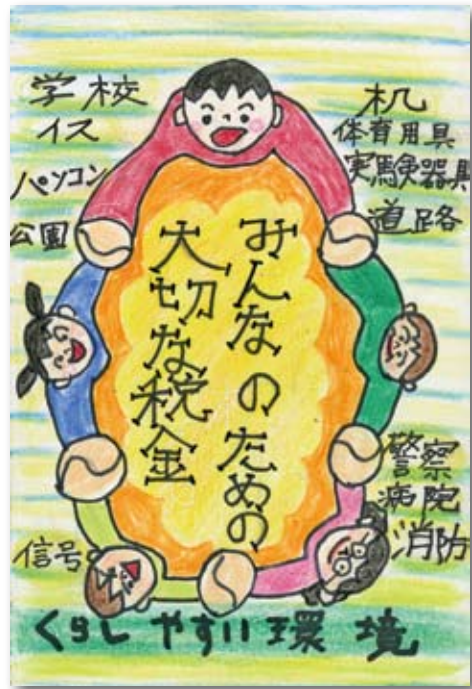 学校
イス
パソコン
公園
机
体育用具
実験器具
道路
みんなのための
大切な税金
警察
病院
消防
信号
くらしやすい環境